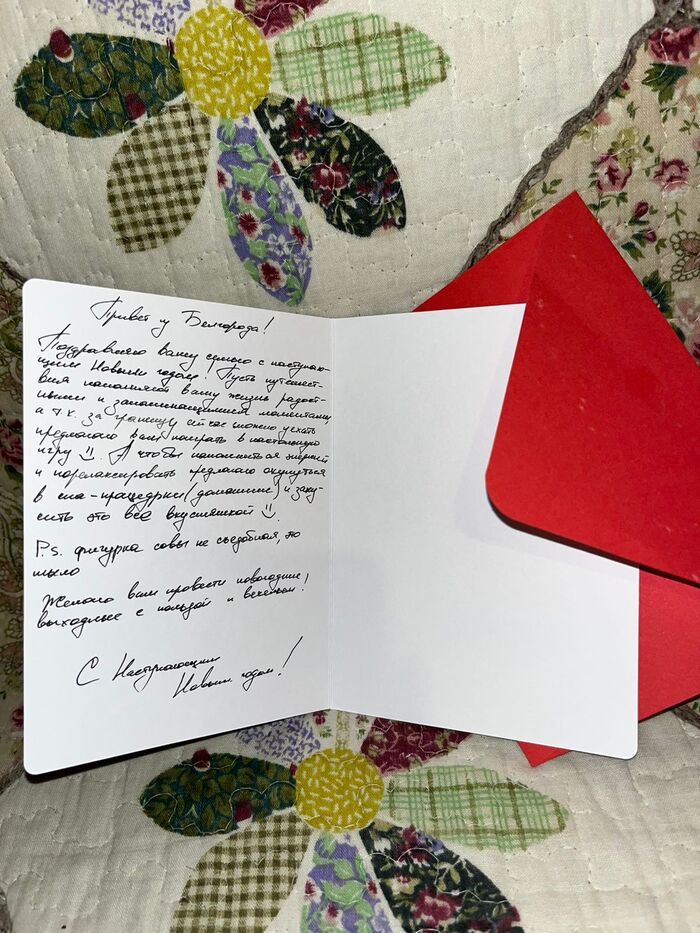 Привет из Белгорода!
Поздравляю вашу семью с наступаю-
щим Новым годом! Пусть путешест-
вия наполняют вашу жизнь радост-
ными и запоминающимися моментами,
а т.к. за границу сейчас можно уехать
предлагаю вам поиграть в настольную
игру ☺. А чтобы наполниться энергией
и порелаксировать предлагаю окунуться
в спа-процедуры (домашние) и заку-
сить это всё вкусняшкой ☺.
P.s. фигурка совы не съедобная, это
мыло
Желаю вам провести новогодние
выходные с пользой и весельем!
С Наступающим
Новым годом!